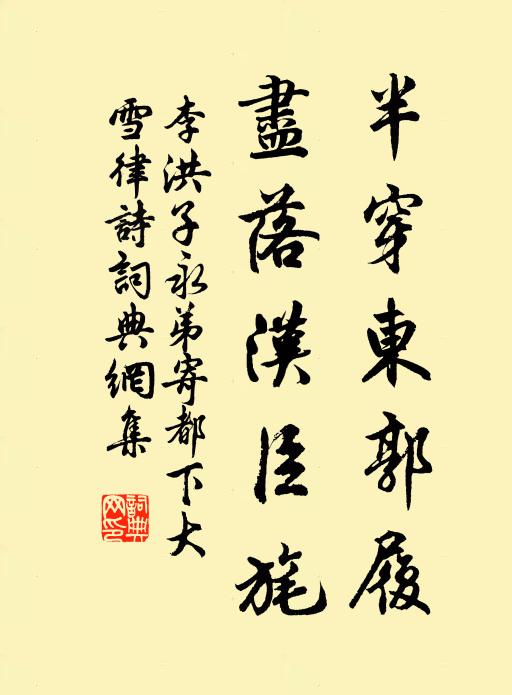 半穿東郭履
盡落漢臣旄
李洪子永弟寄都下大
雪律詩詞典網集
詞典網印